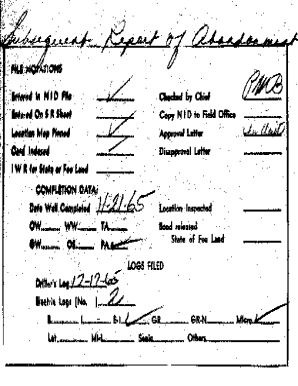 Subsequent Report of Abandonment
FILE NOTATIONS
Entered in NID File ✓ Checked by Chief PMB
Entered On S R Sheet Copy NID to Field Office
Location Map Pinned ✓ Approval Letter
Card Indexed ✓ Disapproval Letter
I W R for State or Fee Land
COMPLETION DATA:
Date Well Completed 11-21-65 Location Inspected
OW WW TA Bond released
GW OS PA ✓ State of Fee Land
LOGS FILED
Driller's Log 12-17-65
Electric Logs (No. ) 2
E I E-I ✓ GR GR-N Micro ✓
Lat. Mi-L Sonic Others